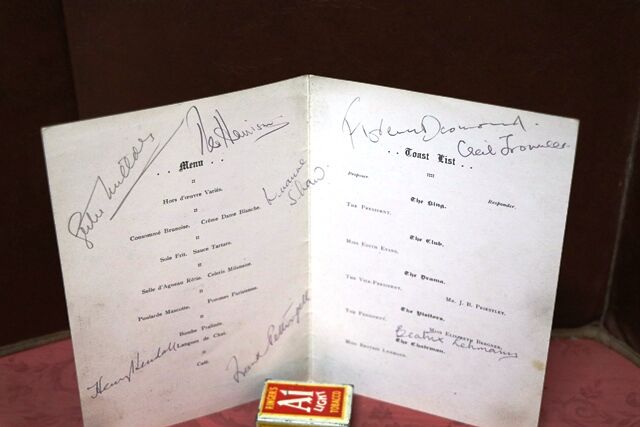 Rex Harrison
.. Menu ..
Hors d'œuvre Variés.
Consommé Brunoise. Crême Dame Blanche.
Sole Frit. Sauce Tartare.
Selle d'Agneau Rôtie. Celeris Milanaise.
Poularde Mascotte. Pommes Parisienne.
Bombe Pralinée.
Langues de Chat.
Café.
Shaw
Henry Kendall
Frank Pettingell
Florence Desmond.
.. Toast List ..
Proposer. Responder.
The King.
The President.
The Club.
Miss Edith Evans.
The Drama.
The Vice-President. Mr. J. B. Priestley.
The Visitors.
The President. Miss Elisabeth Bergner.
Beatrix Lehmann
The Chairman.
Miss Beatrix Lehmann.
RINGER'S
A1
LIGHT
TOBACCO